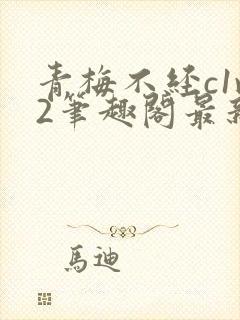 青梅不经c1v
2筆趣閣最新
馬迪